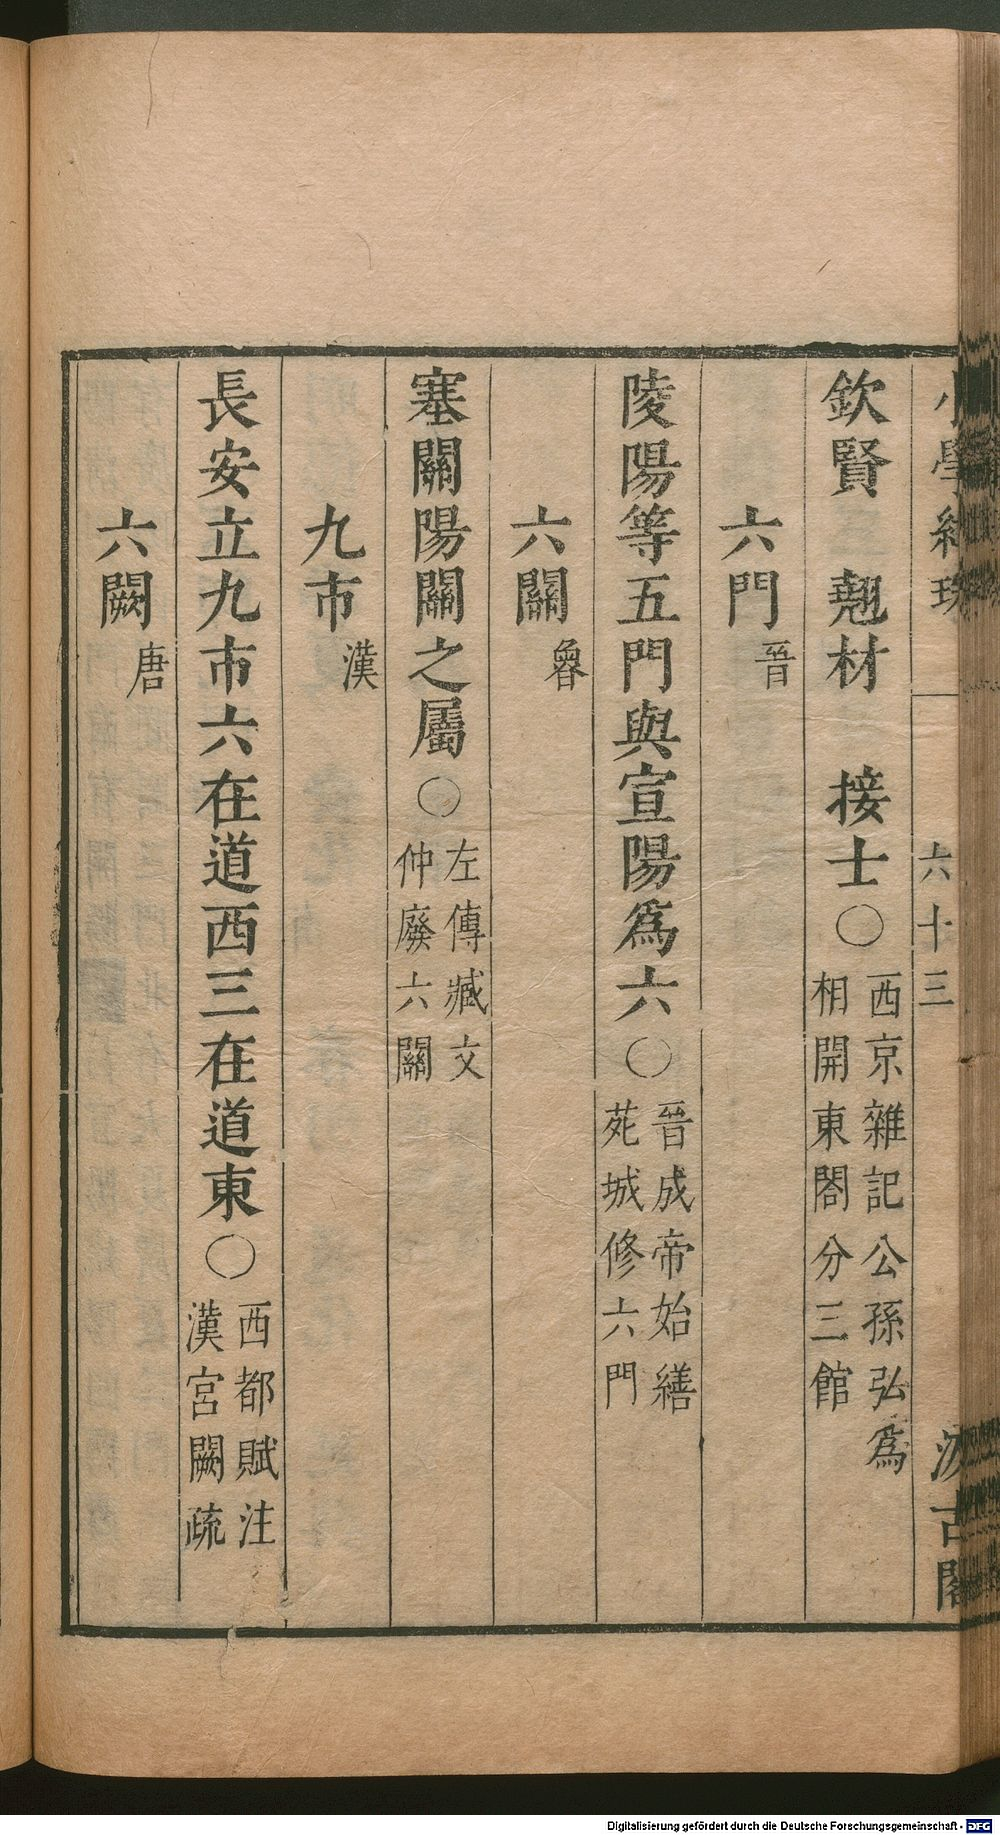 小學紺珠 六十三 汲古閣
欽賢 翹材 接士〇西京雜記公孫弘爲
相開東閤分三館
六門晉
陵陽等五門與宣陽爲六〇晉成帝始繕
苑城修六門
六關魯
塞關陽關之屬〇左傳臧文
仲廢六關
九市漢
長安立九市六在道西三在道東〇西都賦注
漢宮闕疏
六闕唐
Digitalisierung gefördert durch die Deutsche Forschungsgemeinschaft - DFG